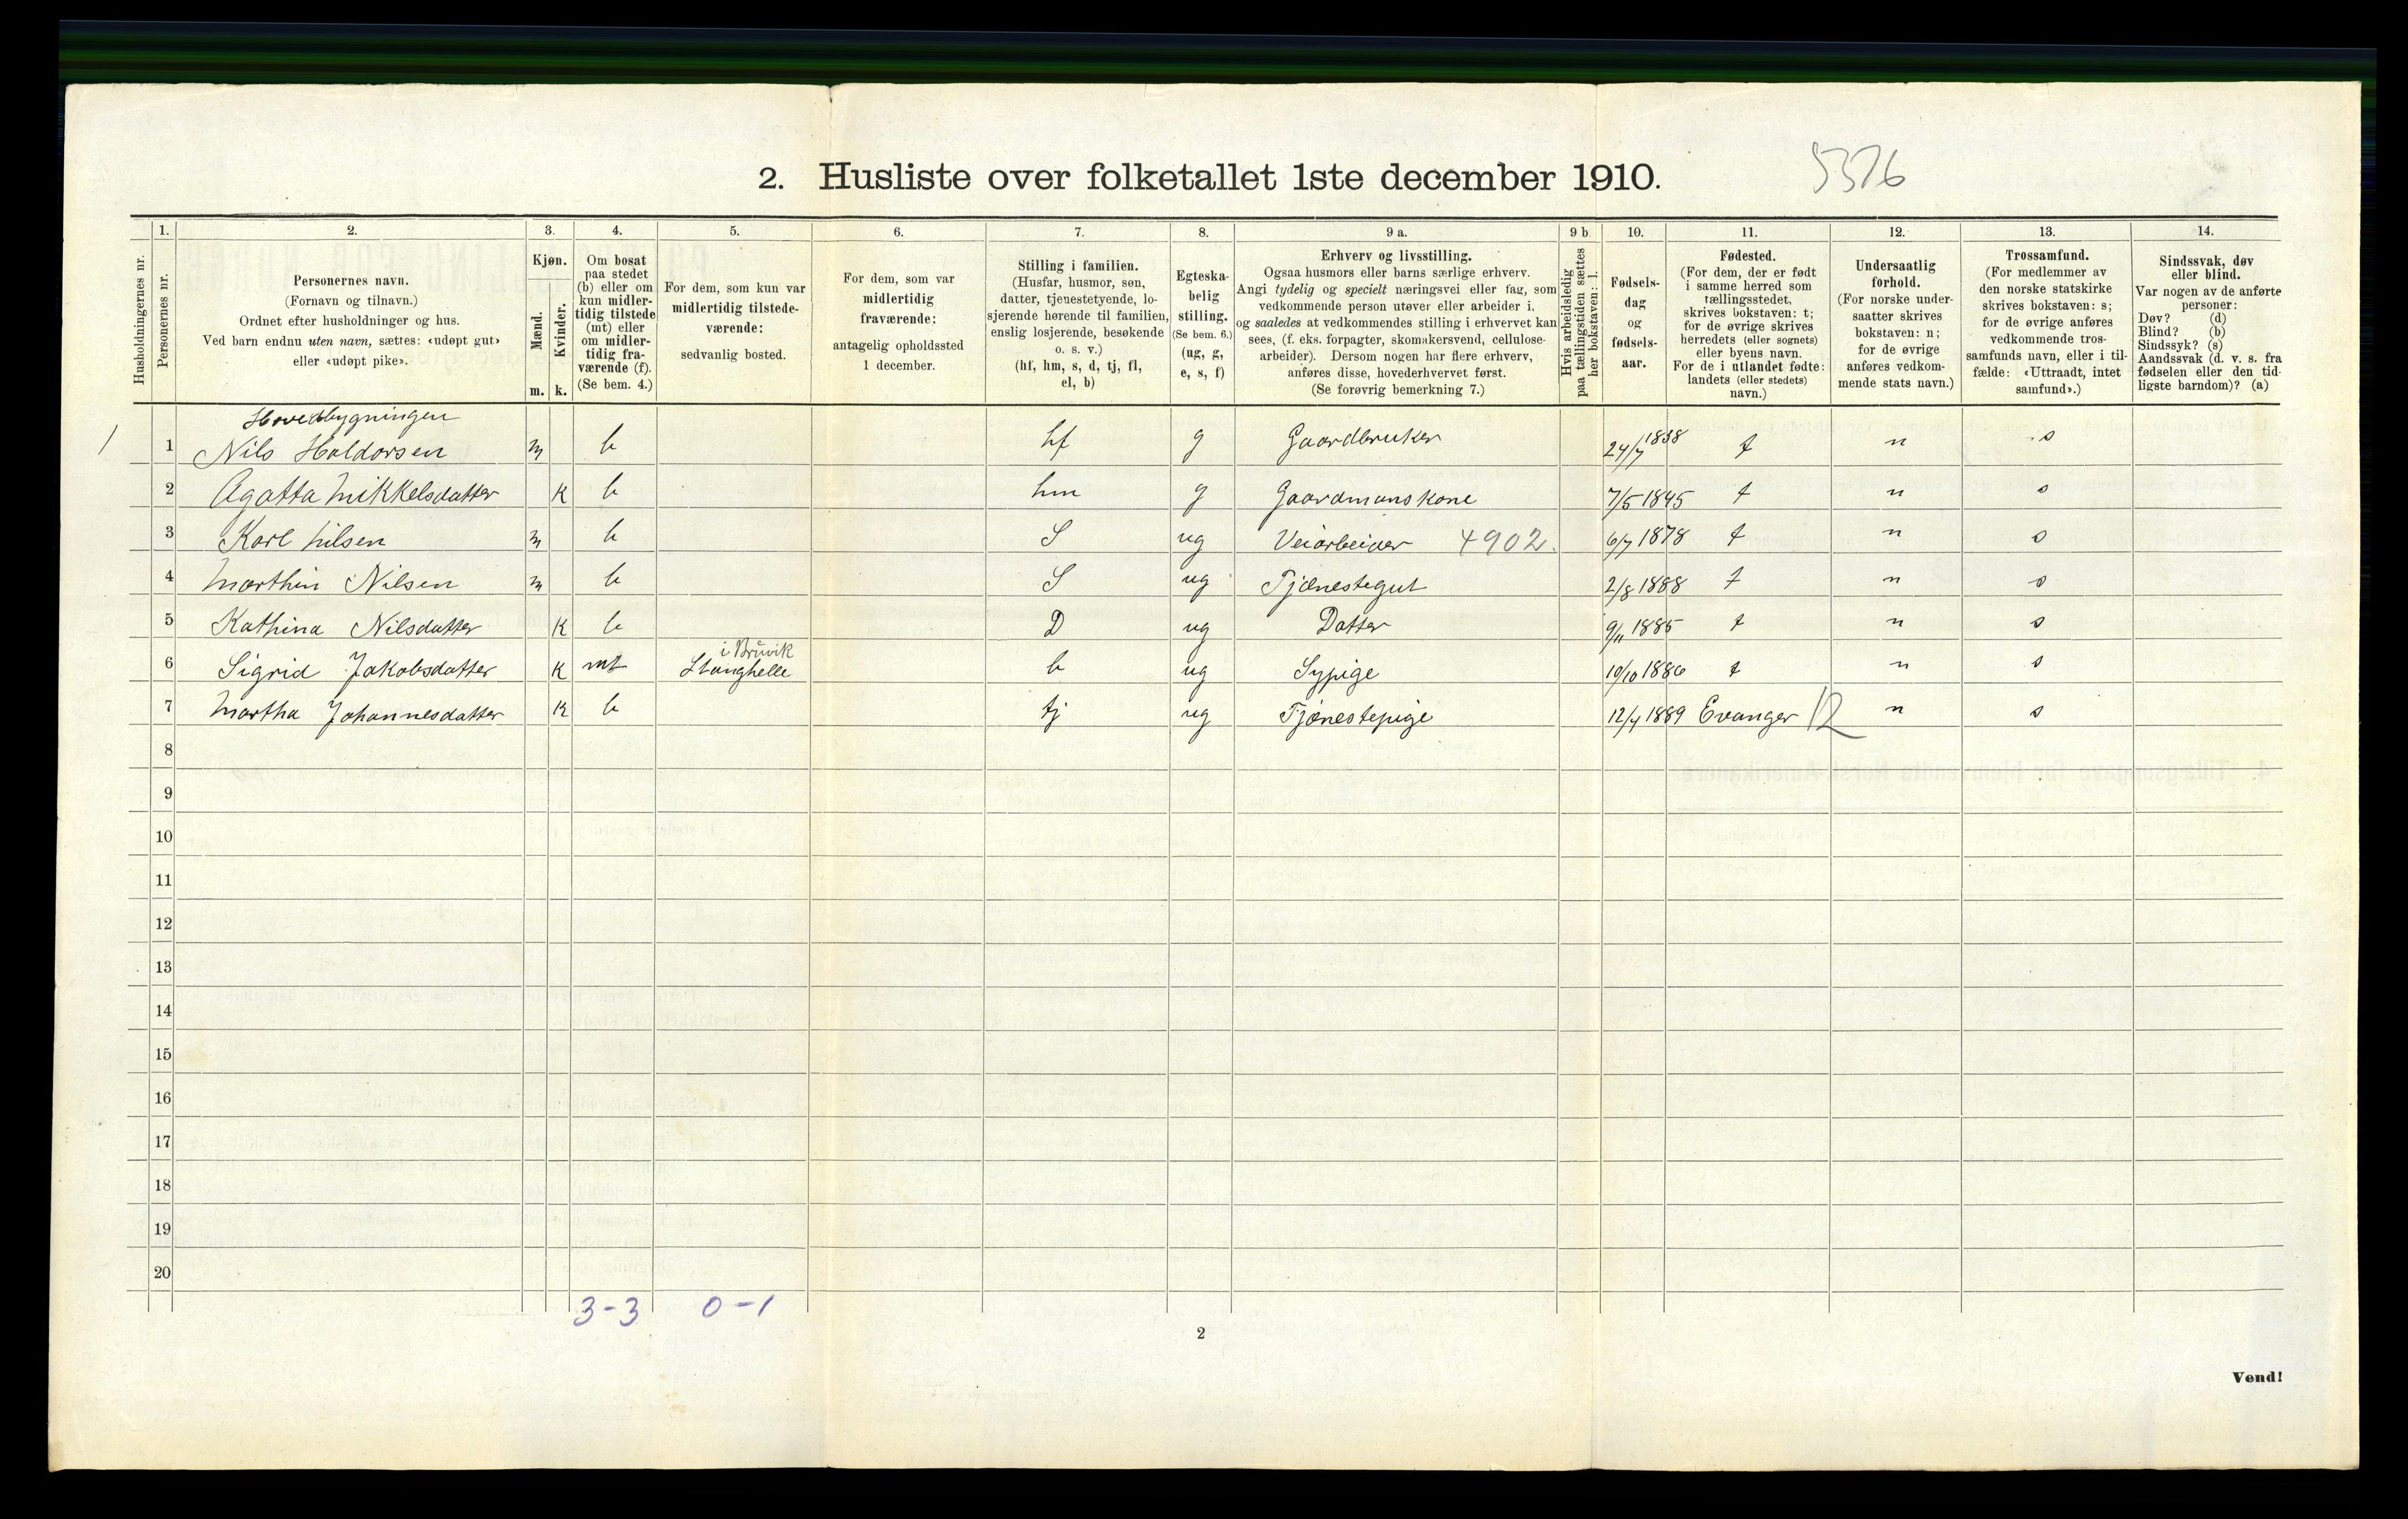 2. Husliste over folketallet 1ste december 1910.
5376
Husholdningernes nr.
1.
Personernes nr.
2.
Personernes navn.
(Fornavn og tilnavn.)
Ordnet efter husholdninger og hus.
Ved barn endnu uten navn, sættes: «udøpt gut»
eller «udøpt pike».
3.
Kjøn.
Mænd.
m.
Kvinder.
k.
4.
Om bosat
paa stedet
(b) eller om
kun midler-
tidig tilstede
(mt) eller
om midler-
tidig fra-
værende (f).
(Se bem. 4.)
5.
For dem, som kun var
midlertidig tilstede-
værende:
sedvanlig bosted.
6.
For dem, som var
midlertidig
fraværende:
antagelig opholdssted
1 december.
7.
Stilling i familien.
(Husfar, husmor, søn,
datter, tjenestetyende, lo-
sjerende hørende til familien,
enslig losjerende, besøkende
o. s. v.)
(hf, hm, s, d, tj, fl,
el, b)
8.
Egteska-
belig
stilling.
(Se bem. 6.)
(ug, g,
e, s, f)
9 a.
Erhverv og livsstilling.
Ogsaa husmors eller barns særlige erhverv.
Angi tydelig og specielt næringsvei eller fag, som
vedkommende person utøver eller arbeider i,
og saaledes at vedkommendes stilling i erhvervet kan
sees, (f. eks. forpagter, skomakersvend, cellulose-
arbeider). Dersom nogen har flere erhverv,
anføres disse, hovederhvervet først.
(Se forøvrig bemerkning 7.)
9 b.
Hvis arbeidsledig
paa tællingstiden sættes
her bokstaven: l.
10.
Fødsels-
dag
og
fødsels-
aar.
11.
Fødested.
(For dem, der er født
i samme herred som
tællingsstedet,
skrives bokstaven: t;
for de øvrige skrives
herredets (eller sognets)
eller byens navn.
For de i utlandet fødte:
landets (eller stedets)
navn.)
12.
Undersaatlig
forhold.
(For norske under-
saatter skrives
bokstaven: n;
for de øvrige
anføres vedkom-
mende stats navn.)
13.
Trossamfund.
(For medlemmer av
den norske statskirke
skrives bokstaven: s;
for de øvrige anføres
vedkommende tros-
samfunds navn, eller i til-
fælde: «Uttraadt, intet
samfund».)
14.
Sindssvak, døv
eller blind.
Var nogen av de anførte
personer:
Døv? (d)
Blind? (b)
Sindssyk? (s)
Aandssvak (d. v. s. fra
fødselen eller den tid-
ligste barndom)? (a)
Hovedbygningen
1 1 Nils Haldorsen m b hf g Gaardbruker 24/7 1838 t n s
2 Agatta Mikkelsdatter K b hm g Gaardmanskone 7/5 1845 t n s
3 Karl Nilsen m b S ug Veiarbeider 4902. 6/7 1878 t n s
4 Marthin Nilsen m b S ug Tjenestegut 2/8 1888 t n s
5 Kathina Nilsdatter K b D ug Datter 9/11 1885 t n s
i Bruvik
6 Sigrid Jakobsdatter K mt Stanghelle b ug Sypige 10/10 1886 t n s
7 Martha Johannesdatter K b tj ug Tjenestepige 12/4 1889 Evanger 12 n s
8
9
10
11
12
13
14
15
16
17
18
19
20
3-3 0-1
2
Vend!